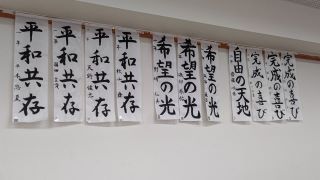 平和共存
平和共存
平和共存
平和共存
希望の光
希望の光
希望の光
自由の天地
完成の喜び
完成の喜び
完成の喜び